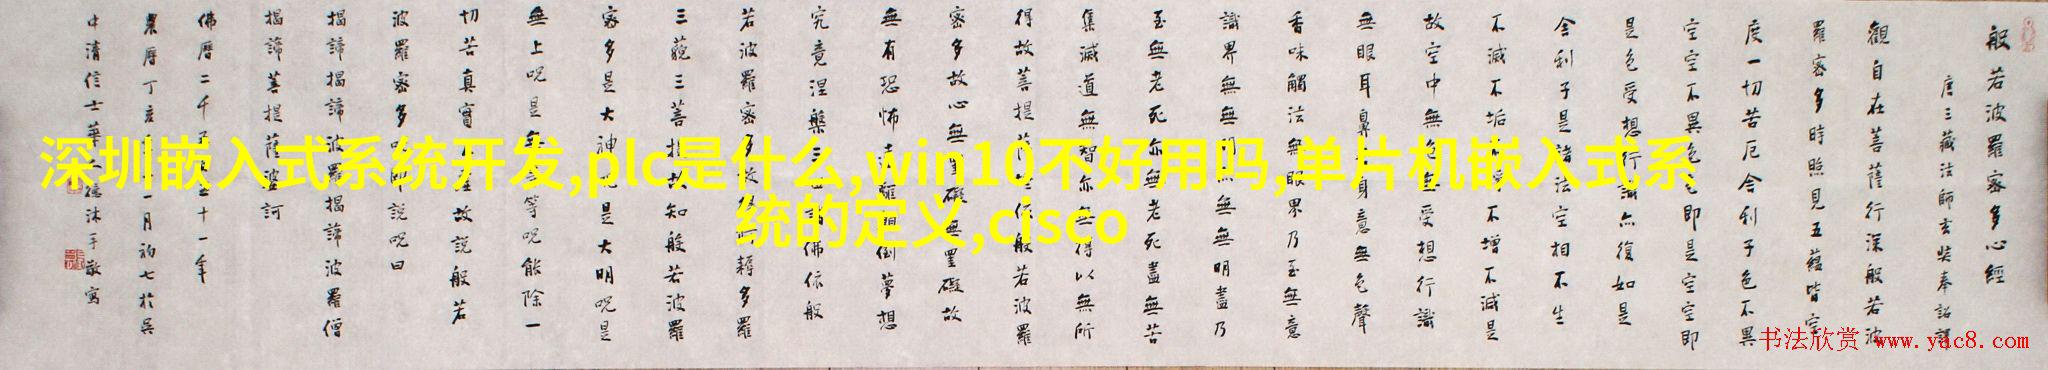 般若波羅蜜多心經
唐三藏法師玄奘奉詔譯
觀自在菩薩行深般若波
羅蜜多時照見五蘊皆空
度一切苦厄舍利子色不異
空空不異色色即是空空即
是色受想行識亦復如是
舍利子是諸法空相不生
不滅不垢不淨不增不減是
故空中無色無受想行識
無眼耳鼻舌身意無色聲
香味觸法無眼界乃至無意
識界無無明亦無無明盡乃
至無老死亦無老死盡無苦
集滅道無智亦無得以無所
得故菩提薩埵依般若波羅
蜜多故心無罣礙無罣礙故
無有恐怖遠離顛倒夢想
究竟涅槃三世諸佛依般
若波羅蜜多故得 耨多羅
三藐三菩提故知般若波羅
蜜多是大神呪是大明呪是
無上呪是無等等呪能除一
切苦真實不虛故說般若
波羅蜜多呪即說呪曰
揭諦揭諦波羅揭諦波羅僧
揭諦菩提薩婆訶
佛曆二千五十一年
農曆丁亥年一月初七於吳
中清信士華德沐手敬寫
深圳嵌入式系统开发,plc是什么,win10不好用吗,单片机嵌入式系
统的定义,cisco
书法欣赏 www.yac8.com